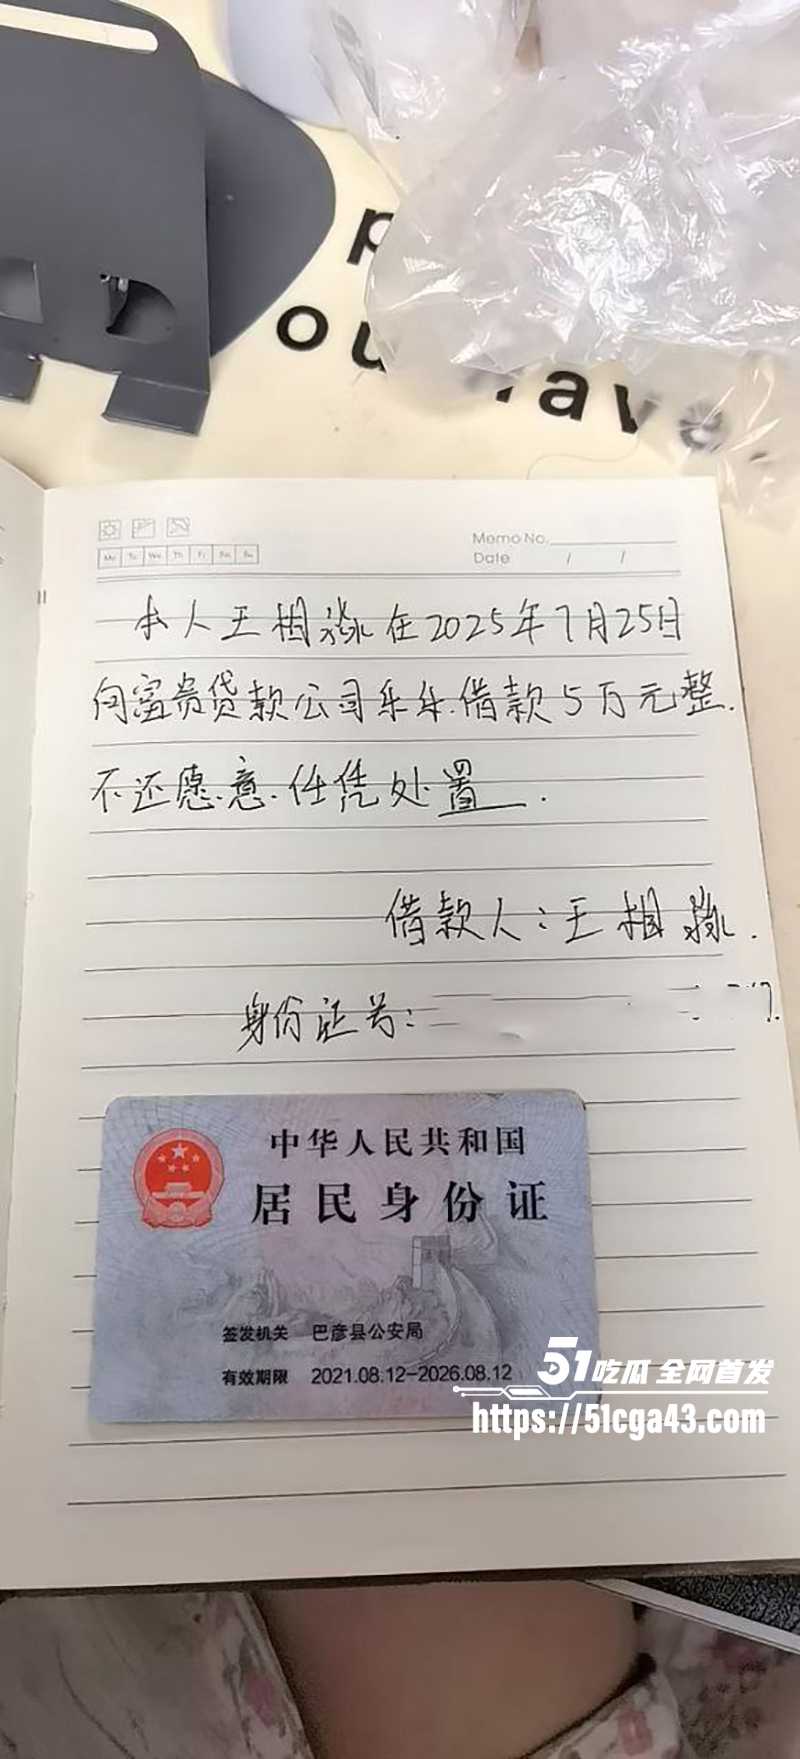 p
ou
have
Memo No.
Date / /
Mo Tu We Th Fr Sa Su
本人王相淼在2025年7月25日
向富贵贷款公司乐乐.借款5万元整.
不还愿意.任凭处置.
借款人:王相淼.
身份证号:
中华人民共和国
居民身份证
签发机关 巴彦县公安局
有效期限 2021.08.12-2026.08.12
51吃瓜 全网首发
https://51cga43.com